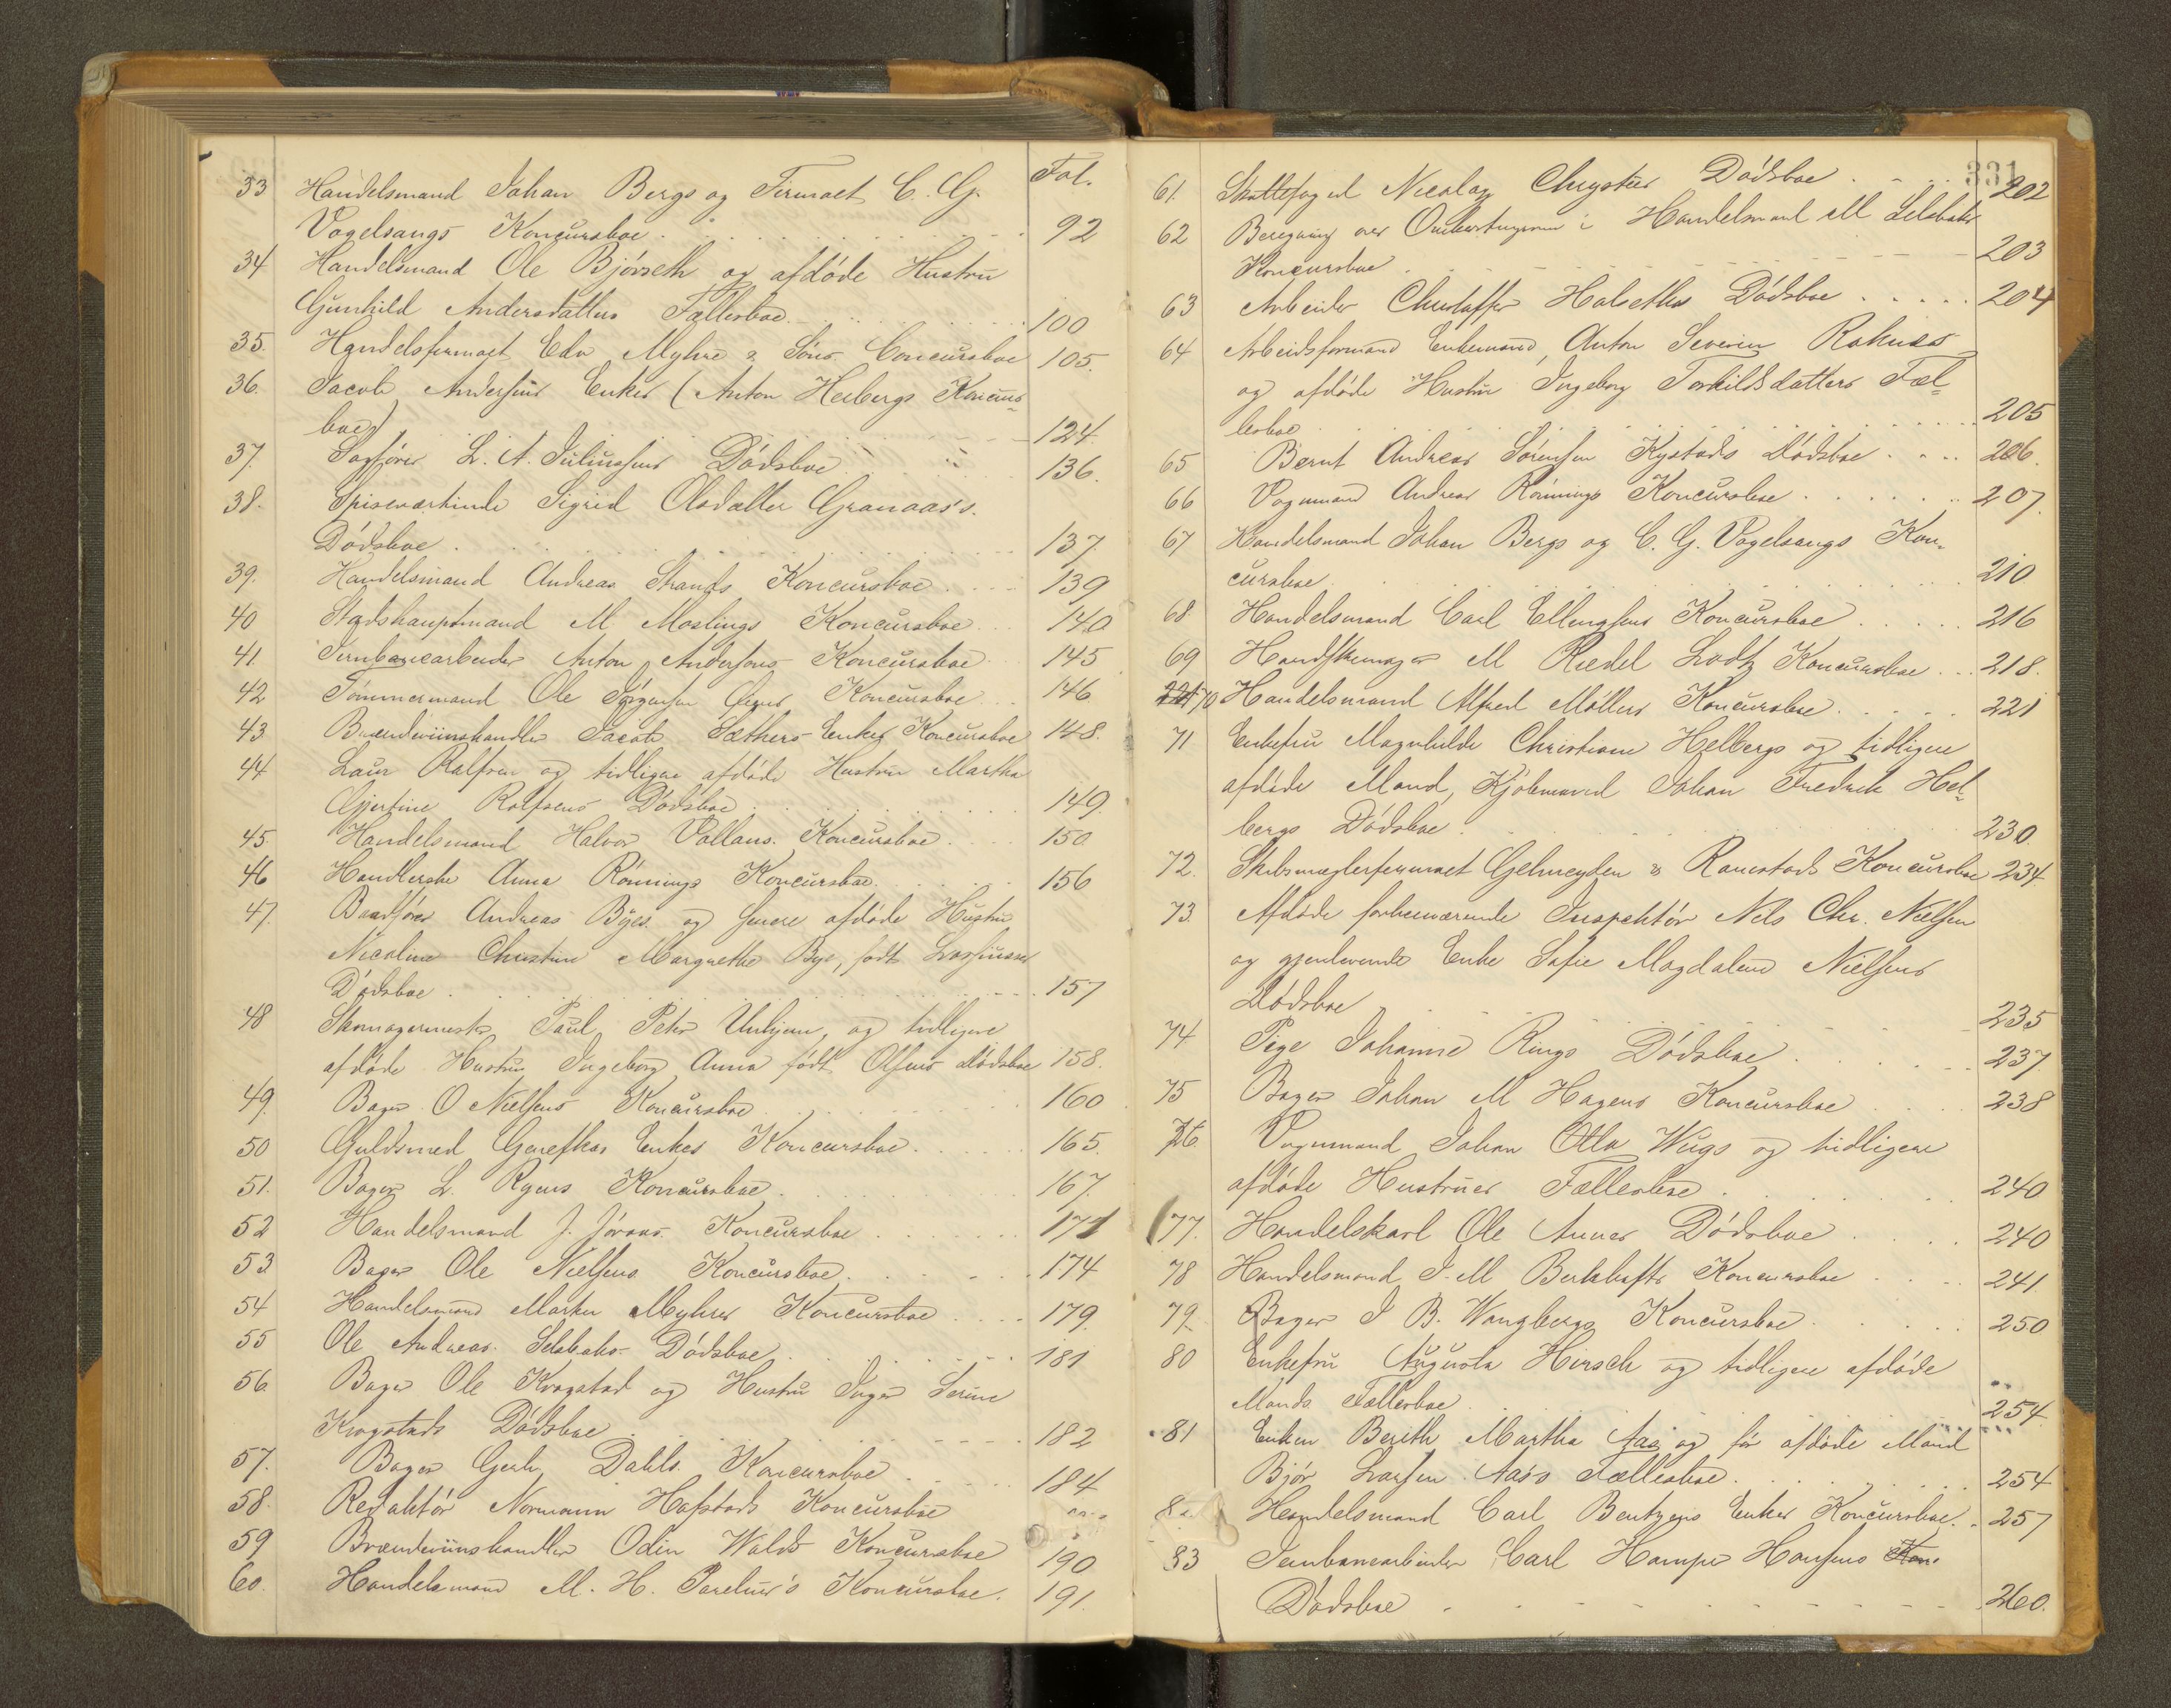 Fol.
33 Handelsmand Johan Bergs og Firmaet C. G.
Vogelsangs Koncursboe 92
34 Handelsmand Ole Bjørseth og afdøde Hustru
Gunhild Andersdatters Fællesboe 100
35. Handelsfirmaet Edv Myhre & Søns Concursboe 105.
36. Jacob Andersens Enkes (Anton Heibergs Koncurs-
boe) 124.
37. Sagfører L. A. Juliussens Dødsboe 136.
38. Spiseværtinde Sigrid Olsdatter Granaas's.
Dødsboe 137.
39. Handelsmand Andreas Strands Koncursboe 139
40 Stadshauptmand M Moslings Koncursboe 140
41. Jernbanearbeider Anton Andersens Koncursboe 145
42 Tømmermand Ole Jørgensen Koncursboe 146
43. Brændeviinshandler Jacob Sæthers Enkes Koncursboe 148.
44 Laur Rolfsen og tidligere afdøde Hustru Martha
Gjertine Rolfsens Dødsboe 149.
45. Handelsmand Halvor Vollans. Koncursboe 150
46 Handlerske Anna Rønnings Koncursboe 156
47. Baadfører Andreas Byes og senere afdøde Hustru
Nicoline Christine Margrethe Bye, født
Dødsboe 157
48 Skomagermester Paul Peter og tidligere
afdøde Hustru Ingeborg Anna født Olsens Dødsboe 158.
49. Bager O Nielsens Koncursboe 160
50 Guldsmed Enkes Koncursboe 165.
51. Bager L. Ryens Koncursboe 167.
52 Handelsmand J. Koncursboe 171
53 Bager Ole Nielsens Koncursboe 174
54 Handelsmand Martin Myhres Koncursboe 179.
55 Ole Andreas Selsbaks Dødsboe 181
56 Bager Ole Krogstad og Hustru Inger Serine
Krogstads Dødsboe 182
57. Bager Gerh Dahls Koncursboe 184
58. Redaktør Normann Hofstads Koncursboe
59 Brændeviinshandler Odin Walds Koncursboe 190
60. Handelsmand M. H. Koncursboe. 191.
331
61. Skattefoged Nicolay Chrysties Dødsboe 202
62 Beregning over Omkostningerne i Handelsmand M Selsbaks
Koncursboe 203
63 Arbeider Christoffer Halseths Dødsboe 204
64 Arbeidsformand Enkemand, Anton Severin
og afdøde Hustru Ingeborg Torkildsdatters Fæl-
lesboe 205
65 Bernt Andreas Sørensen Kystads Dødsboe 206.
66 Vognmand Andreas Rønnings Koncursboe 207.
67 Handelsmand Johan Bergs og C. G. Vogelsangs Kon-
cursboe 210
68 Handelsmand Carl Ellingsens Koncursboe 216
69 Handskemager M Riedel Lodtz Koncursboe 218.
70 Handelsmand Alfred Møllers Koncursboe 221
71 Enkefru Magnhilde Christiane Helbergs og tidligere
afdøde Mand, Kjøbmand Johan Fredrik Hel-
bergs Dødsboe 230.
72. Skibsmæglerfirmaet Gelmeyden & Ranestads Koncursboe 234
73 Afdøde forhenværende Inspektør Nils Chr. Nielsen
og gjenlevende Enke Sofie Magdalene Nielsens
Dødsboe 235
74 Pige Johanne Rings Dødsboe 237.
75 Bager Johan M Hagens Koncursboe 238
76. Vognmand Johan Otto Wiigs og tidligere
afdøde Hustrues Fællesboe 240
77. Handelskarl Ole Aunes Dødsboe 240
78 Handelsmand J. M Berkhafts Koncursboe 241.
79. Bager J B. Wangbergs Koncursboe 250
80 Enkefru Augusta Hirsch og tidligere afdøde
Mands Fællesboe 254.
81 Enken Berith Martha Aas og før afdøde Mand
Larsen Aas's Fællesboe 254
82. Handelsmand Carl Bentzens Enkes Koncursboe. 257
83 Jernbanearbeider Carl Hampe Hansens Kon.
Dødsboe 260.